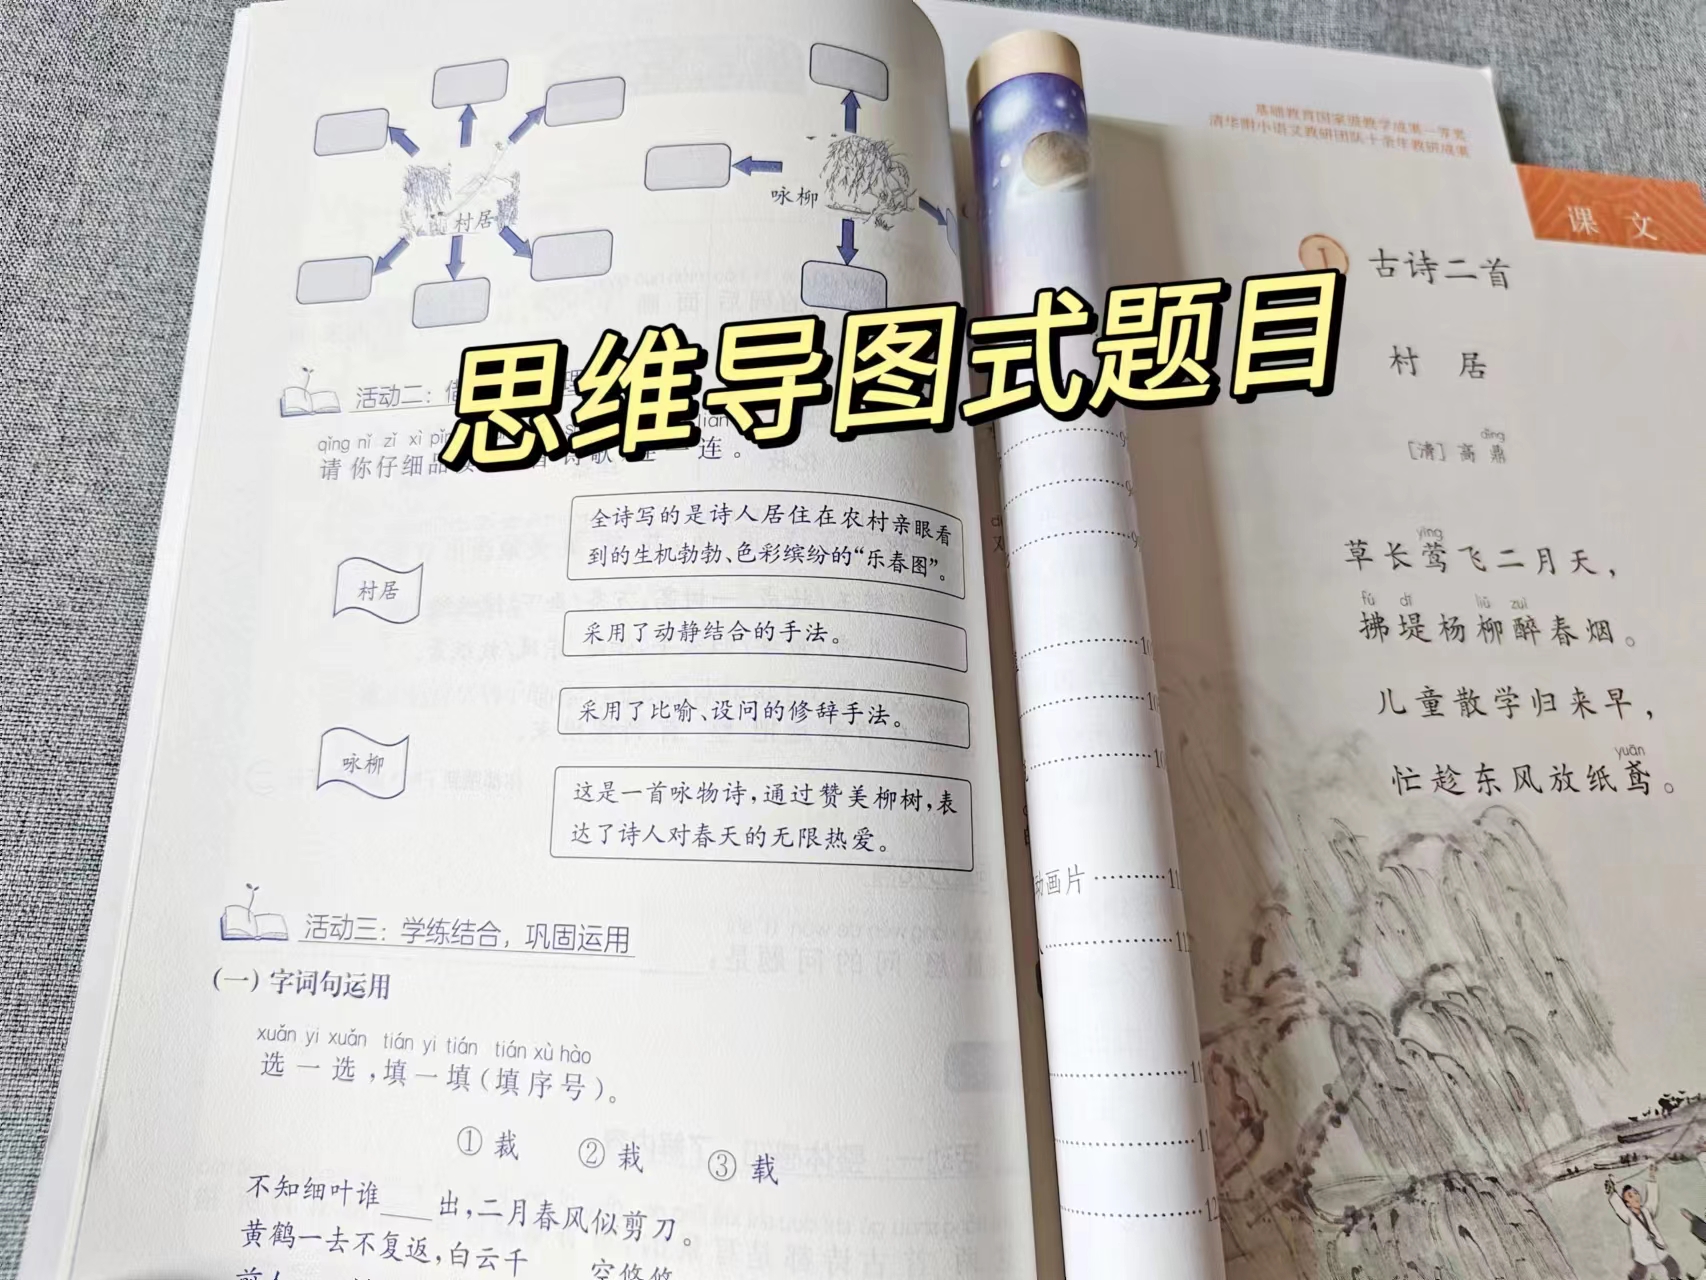 村居
咏柳
思维导图式题目
活动二：
qǐng nǐ zǐ xì pǐn
请你仔细品
连。
村居
全诗写的是诗人居住在农村亲眼看
到的生机勃勃、色彩缤纷的“乐春图”。
采用了动静结合的手法。
咏柳
采用了比喻、设问的修辞手法。
这是一首咏物诗，通过赞美柳树，表
达了诗人对春天的无限热爱。
活动三：学练结合，巩固运用
（一）字词句运用
xuǎn yi xuǎn tián yi tián tián xù hào
选一选，填一填（填序号）。
① 裁 ② 栽 ③ 载
不知细叶谁____出，二月春风似剪刀。
黄鹤一去不复返，白云千
空悠悠
动画片
基础教育国家级教学成果一等奖
清华附小语文教研团队十余年教研成果
课文
1 古诗二首
村居
dǐng
［清］高鼎
yīng
草长莺飞二月天，
fú dī liǔ zuì
拂堤杨柳醉春烟。
儿童散学归来早，
yuān
忙趁东风放纸鸢。